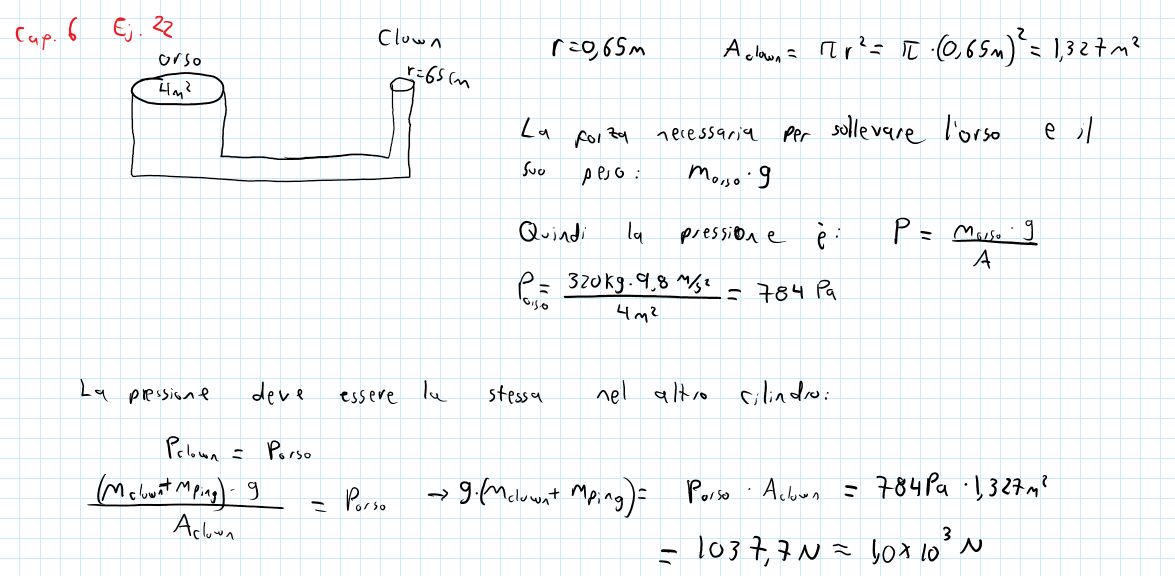 Cap. 6 Ej. 22
orso
4m²
Clown
r=65cm
r=0,65m A clown = π r² = π · (0,65m)² = 1,327m²
La forza necessaria per sollevare l'orso e il
suo peso: m orso · g
Quindi la pressione è: P = m orso · g / A
P orso = 320kg · 9,8 m/s² / 4m² = 784 Pa
La pressione deve essere la stessa nel altro cilindro:
P clown = P orso
(m clown + m ping) · g / A clown = P orso → g·(m clown + m ping) = P orso · A clown = 784Pa · 1,327m²
= 1037,7N ≈ 1,0×10³ N